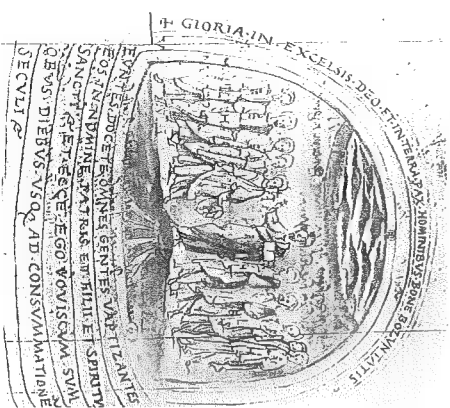 ✠ GLORIA·IN·EXCELSIS·DEO·ET·IN·TERRA·PAX·HOMINIBVS·BONE·BOLVNTATIS
EVNTES DOCETE OMNES GENTES VAPTIZANTES
EOS·IN·NOMINE·PATRIS·ET·FILII·ET·SPIRITVS
SANCTI ET·ECCE·EGO·VOVISCVM·SVM
OBVS·DIEBVS·VSQ AD·CONSVMMATIONE
SECVLI